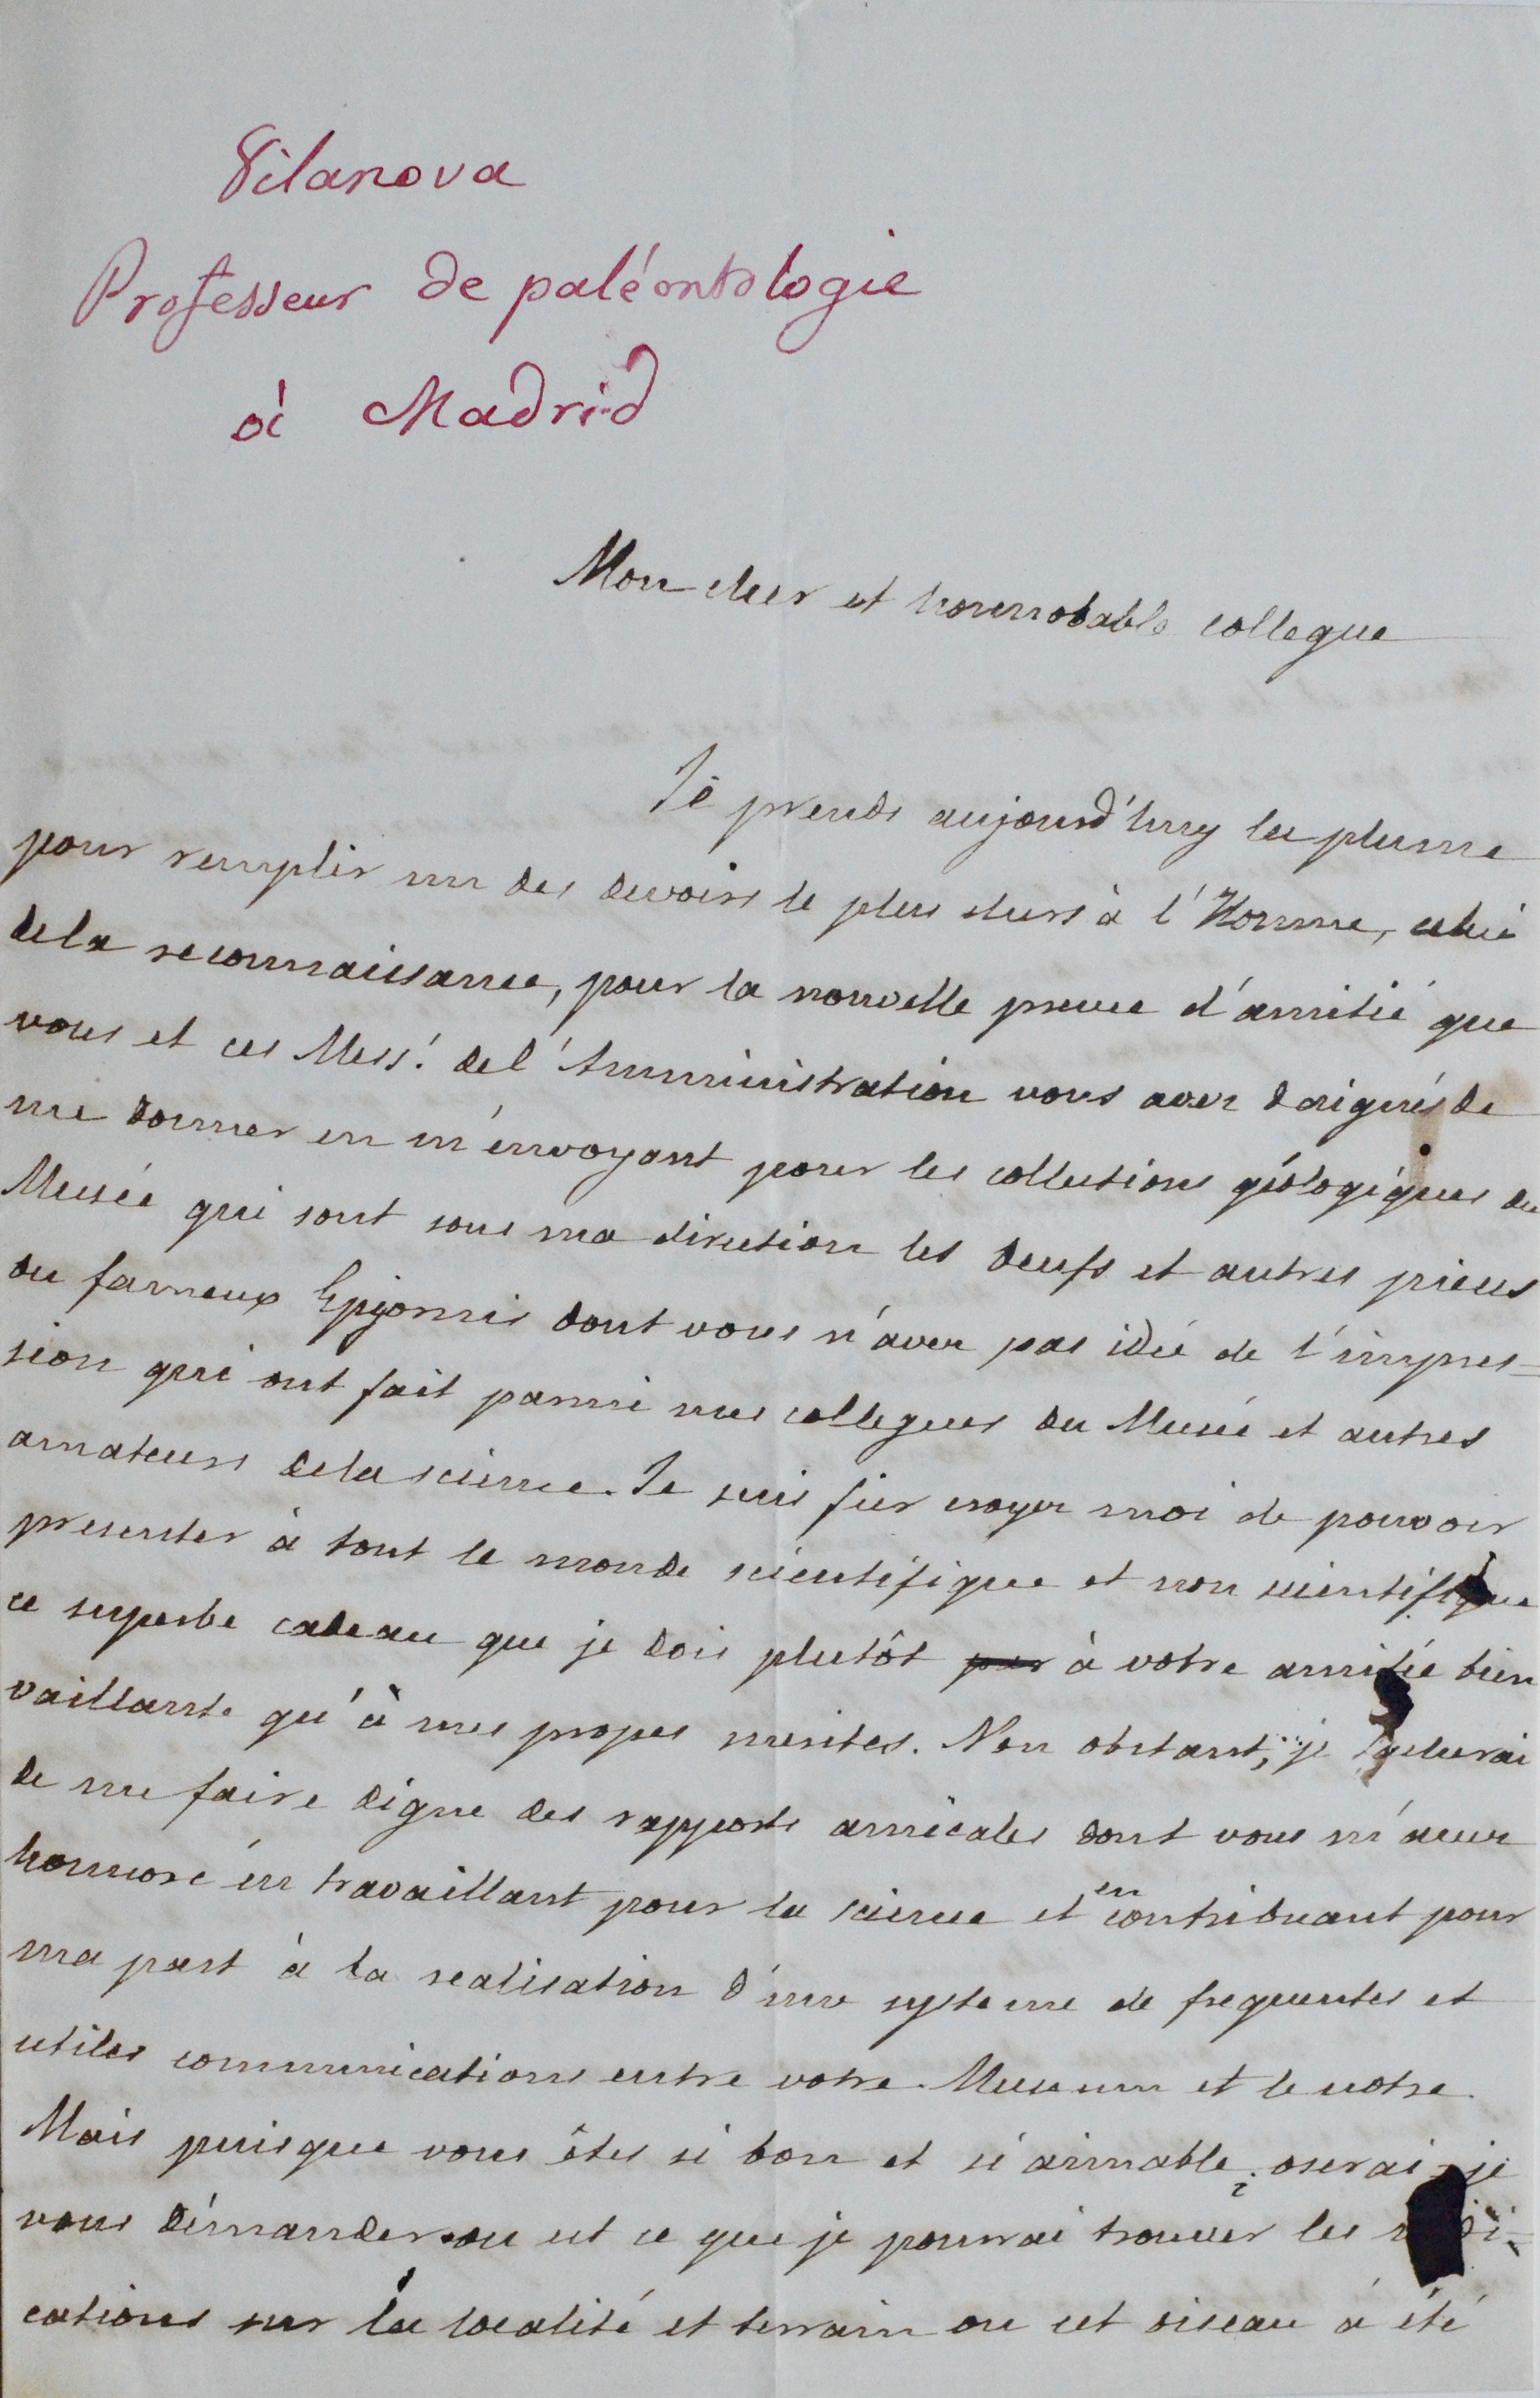 Vilanova
Professeur de paléontologie
à Madrid
Mon cher et honnorabable collegue
Je prends aujourd'huy la plume
pour remplir un des devoirs le plus chers à l'Homme, celui
de la reconnaissance, pour la nouvelle preuve d'amitié que
vous et ces Mess.' de l'Amministration vous avez daignés de
me donner en m'envoyant pour les collections géologiques du
Musée qui sont sous ma direction les oeufs et autres pieces
du fameux Epyornis dont vous n'avez pas idée de l'impres=
sion qui ont fait parmi mes collegues du Musée et autres
amateurs de la science. Je suis fier croyez moi de pouvoir
presenter à tout le monde scientifique et non scientifique
ce superbe cadeau que je dois plutôt à votre amitié bien
vaillante qu'à mes propes merites. Non obstant, je tacherai
de me faire digne des rapports amicales dont vous m'avez
honnoré en travaillant pour la science et en contribuant pour
ma part à la realisation d'une systeme de frequentes et
utiles communications entre votre Museum et le notre.
Mais puisque vous êtes si bon et si aimable, oserai-je
vous démander ou est ce que je pourrai trouver les
cations sur la localité et terrain ou cet oiseau à été